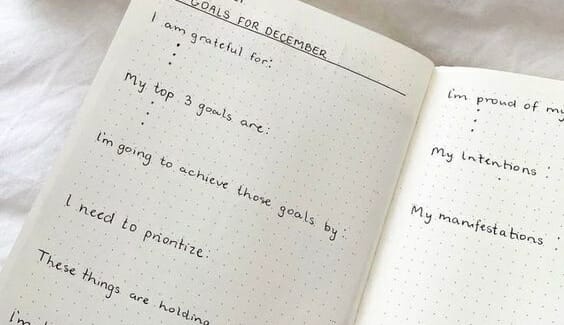 GOALS FOR DECEMBER
I am grateful for:
My top 3 goals are:
I'm going to achieve those goals by:
I need to prioritize:
These things are holding
I'm
I'm proud of my
My intentions :
My manifestations :